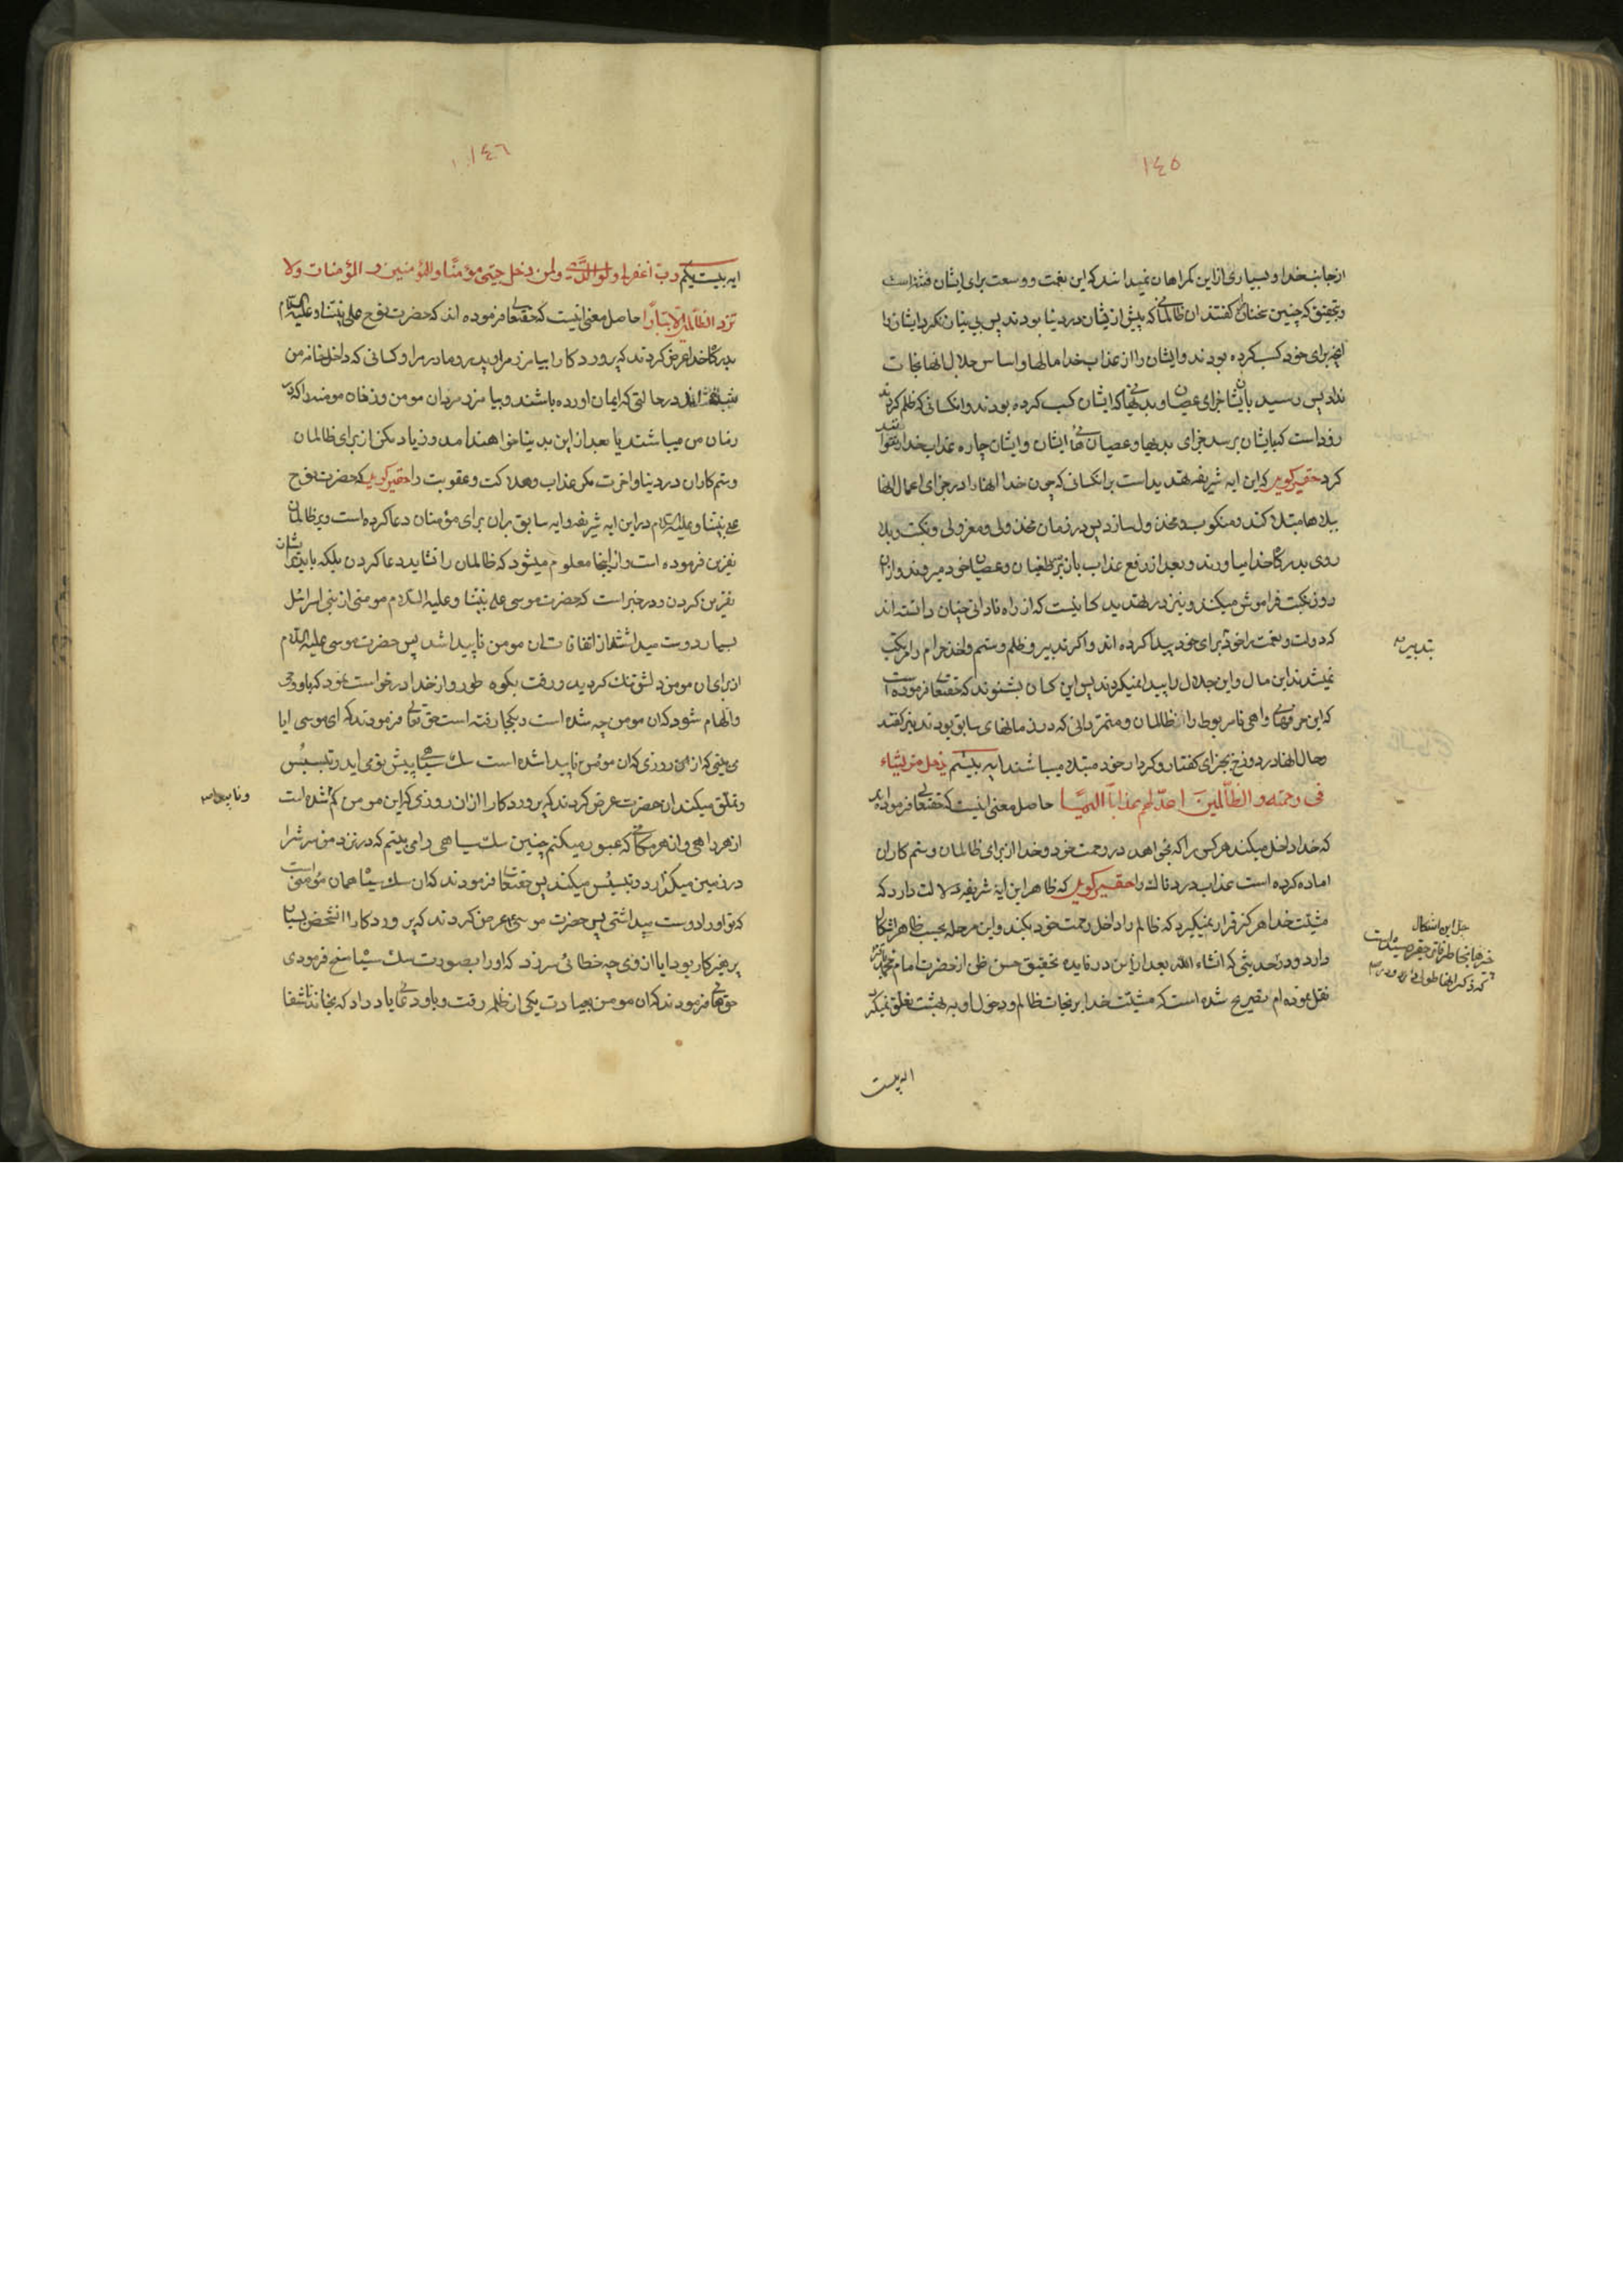 ١٤٥
از جانب خدا و بسیاری از این کمراهان نمیدانند که این نعمت و وسعت برای ایشان فتنه است
و بتحقیق که چنین سخنان کفتند ان ظالمانی که پیش از ایشان در دنیا بودند پس بی نیاز نکرد ایشانرا
انچه برای خود کسب کرده بودند و ایشان را از عذاب خدا مالها و اساس جلال انها نجات
نداد پس رسید بایشان جزای عصیان و بدیهائی که ایشان کسب کرده بودند و انکسانی که ظلم کردند
زود است که بایشان برسد جزای بدیها و عصیان های ایشان و ایشان چاره عذاب خدا نتوانند
کرد حقیر کوید که این ایه شریفه تهدید است بر انکسانی که چون خدا انها را در جزای اعمال انها
ببلاها مبتلا کند و منکوب و مخذول سازد پس در زمان مخذولی و معزولی و نکبت و بلا
روی بدرکاه خدا میاورند و بعد از رفع عذاب باز بر سر طغیان و عصیان خود میروند و از ان
روز نکبت فراموش میکنند و نیز در تهدید کسانیست که از راه نادانی چنان دانسته اند
که دولت و نعمت را خود برای خود پیدا کرده اند و اکر تدبیر و ظلم و ستم و اخذ حرام را مرتکب
نمیشدند این مال و این جلال را پیدا نمیکردند پس این کسان بشنوند که حقتعالی فرموده است
که این حرفهای واهی نامربوط را ظالمان و متمردانی که در زمانهای سابق بودند نیز کفتند
و حال انها در دوزخ بجزای کفتار و کردار خود مبتلا میباشند ایه بیستم یدخل من یشاء
فی رحمته و الظالمین اعد لهم عذابا الیما حاصل معنی اینست که حقتعالی فرموده اند
که خدا داخل میکند هر کس را که بخواهد در رحمت خود و خدا از برای ظالمان و ستم کاران
اماده کرده است عذاب دردناک را حقیر کوید که ظاهر این ایه شریفه دلالت دارد که
مشیت خدا هرکز قرار نمیکیرد که ظالم را داخل رحمت خود بکند و این مرحله بحسب ظاهر اشکال
دارد و در حدیثی که انشاء الله بعد از این در فایده تحقیق حسن ظن از حضرت امام محمد باقر
نقل نموده ام تصریح شده است که مشیت خدا بر نجات ظالم و دخول او به بهشت تعلق نمیکیرد
بتدبیر
حل این اشکال
ایه بیست
١٤٦
ایه بیست یکم رب اغفر لی و لوالدی و لمن دخل بیتی مؤمنا و للمؤمنین و المؤمنات و لا
تزد الظالمین الا تبارا حاصل معنی اینست که حقتعالی فرموده اند که حضرت نوح علی نبینا و علیه السلام
بدرکاه خدا عرض کردند که پروردکارا بیامرز مرا و پدر و مادر مرا و کسانی که داخل خانه من
شده اند در حالتی که ایمان اورده باشند و بیامرز مردان مومن و زنان مومنه را که
زنان من میباشند یا بعد از این بدنیا خواهند امد و زیاد مکن از برای ظالمان
و ستم کاران در دنیا و اخرت مکر عذاب و هلاکت و عقوبت را حقیر کوید که حضرت نوح
علی نبینا و علیه السلام در این ایه شریفه و ایه سابق بران برای مؤمنان دعا کرده است و بر ظالمان
نفرین فرموده است و از اینجا معلوم میشود که ظالمان را نشاید دعا کردن بلکه باید ایشان را
نفرین کردن و در خبر است که حضرت موسی علی نبینا و علیه السلام مومنی از بنی اسرائیل
بسیار دوست میداشتند از اتفاقات ان مومن ناپیدا شد پس حضرت موسی علیه السلام
از برای ان مومن دلش تنک کردید و رفت بکوه طور و از خدا درخواست نمود که باو وحی
و الهام شود که ان مومن چه شده است و بکجا رفته است حق تعالی فرمودند که ای موسی ایا
می بینی که از ان روزی که ان مومن ناپیدا شده است سک سیاهی پیش تو می اید و تبسبس
و تملق میکند ان حضرت عرض کردند که پروردکارا از ان روزی که این مومن کم شده است
از هر راهی و از هر مکانی که عبور میکنم چنین سک سیاهی را می بینم که در نزد من سرش را
در زمین میکذارد و تبسبس میکند پس حقتعالی فرمودند که ان سک سیاه همان مؤمنی است
که تو او را دوست میداشتی پس حضرت موسی عرض کردند که پروردکارا انشخص بسیار
پرهیزکار بود ایا از وی چه خطائی سرزد که او را بصورت سک سیاه مسخ فرمودی
حق تعالی فرمودند که ان مومن بعیادت یکی از ظلمه رفت و باو دعائی یاد داد که بخاند تا شفا